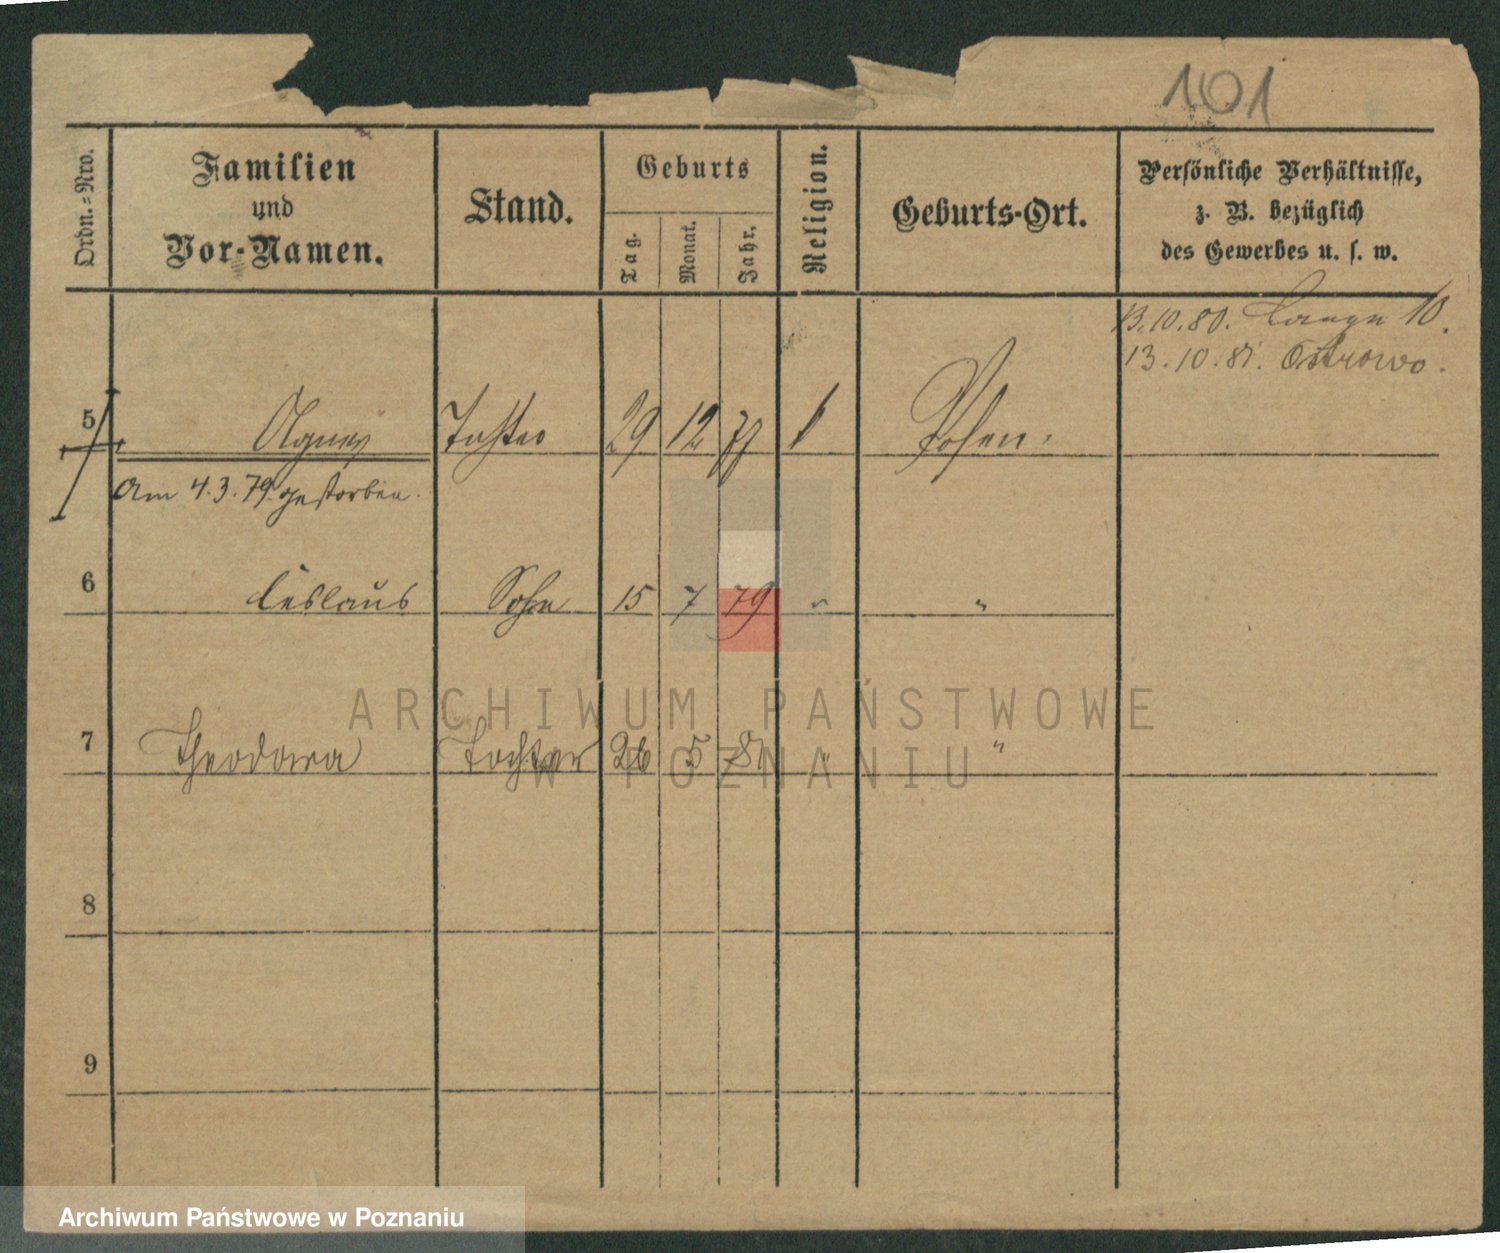 101
Ordn.=Nro.
Familien
und
Vor-Namen.
Stand.
Geburts
Tag.
Monat.
Jahr.
Religion.
Geburts-Ort.
Persönliche Verhältnisse,
z. B. bezüglich
des Gewerbes u. s. w.
13.10.80. Lange 10.
13.10.81. Ostrowo.
5 Agnes Tochter 29 12 77 Posen.
Am 4.3.79. gestorben.
6 Ceslaus Sohn 15 7 79 " "
ARCHIWUM PAŃSTWOWE
W POZNANIU
7 Theodora Tochter 26 5 81 " "
8
9
Archiwum Państwowe w Poznaniu